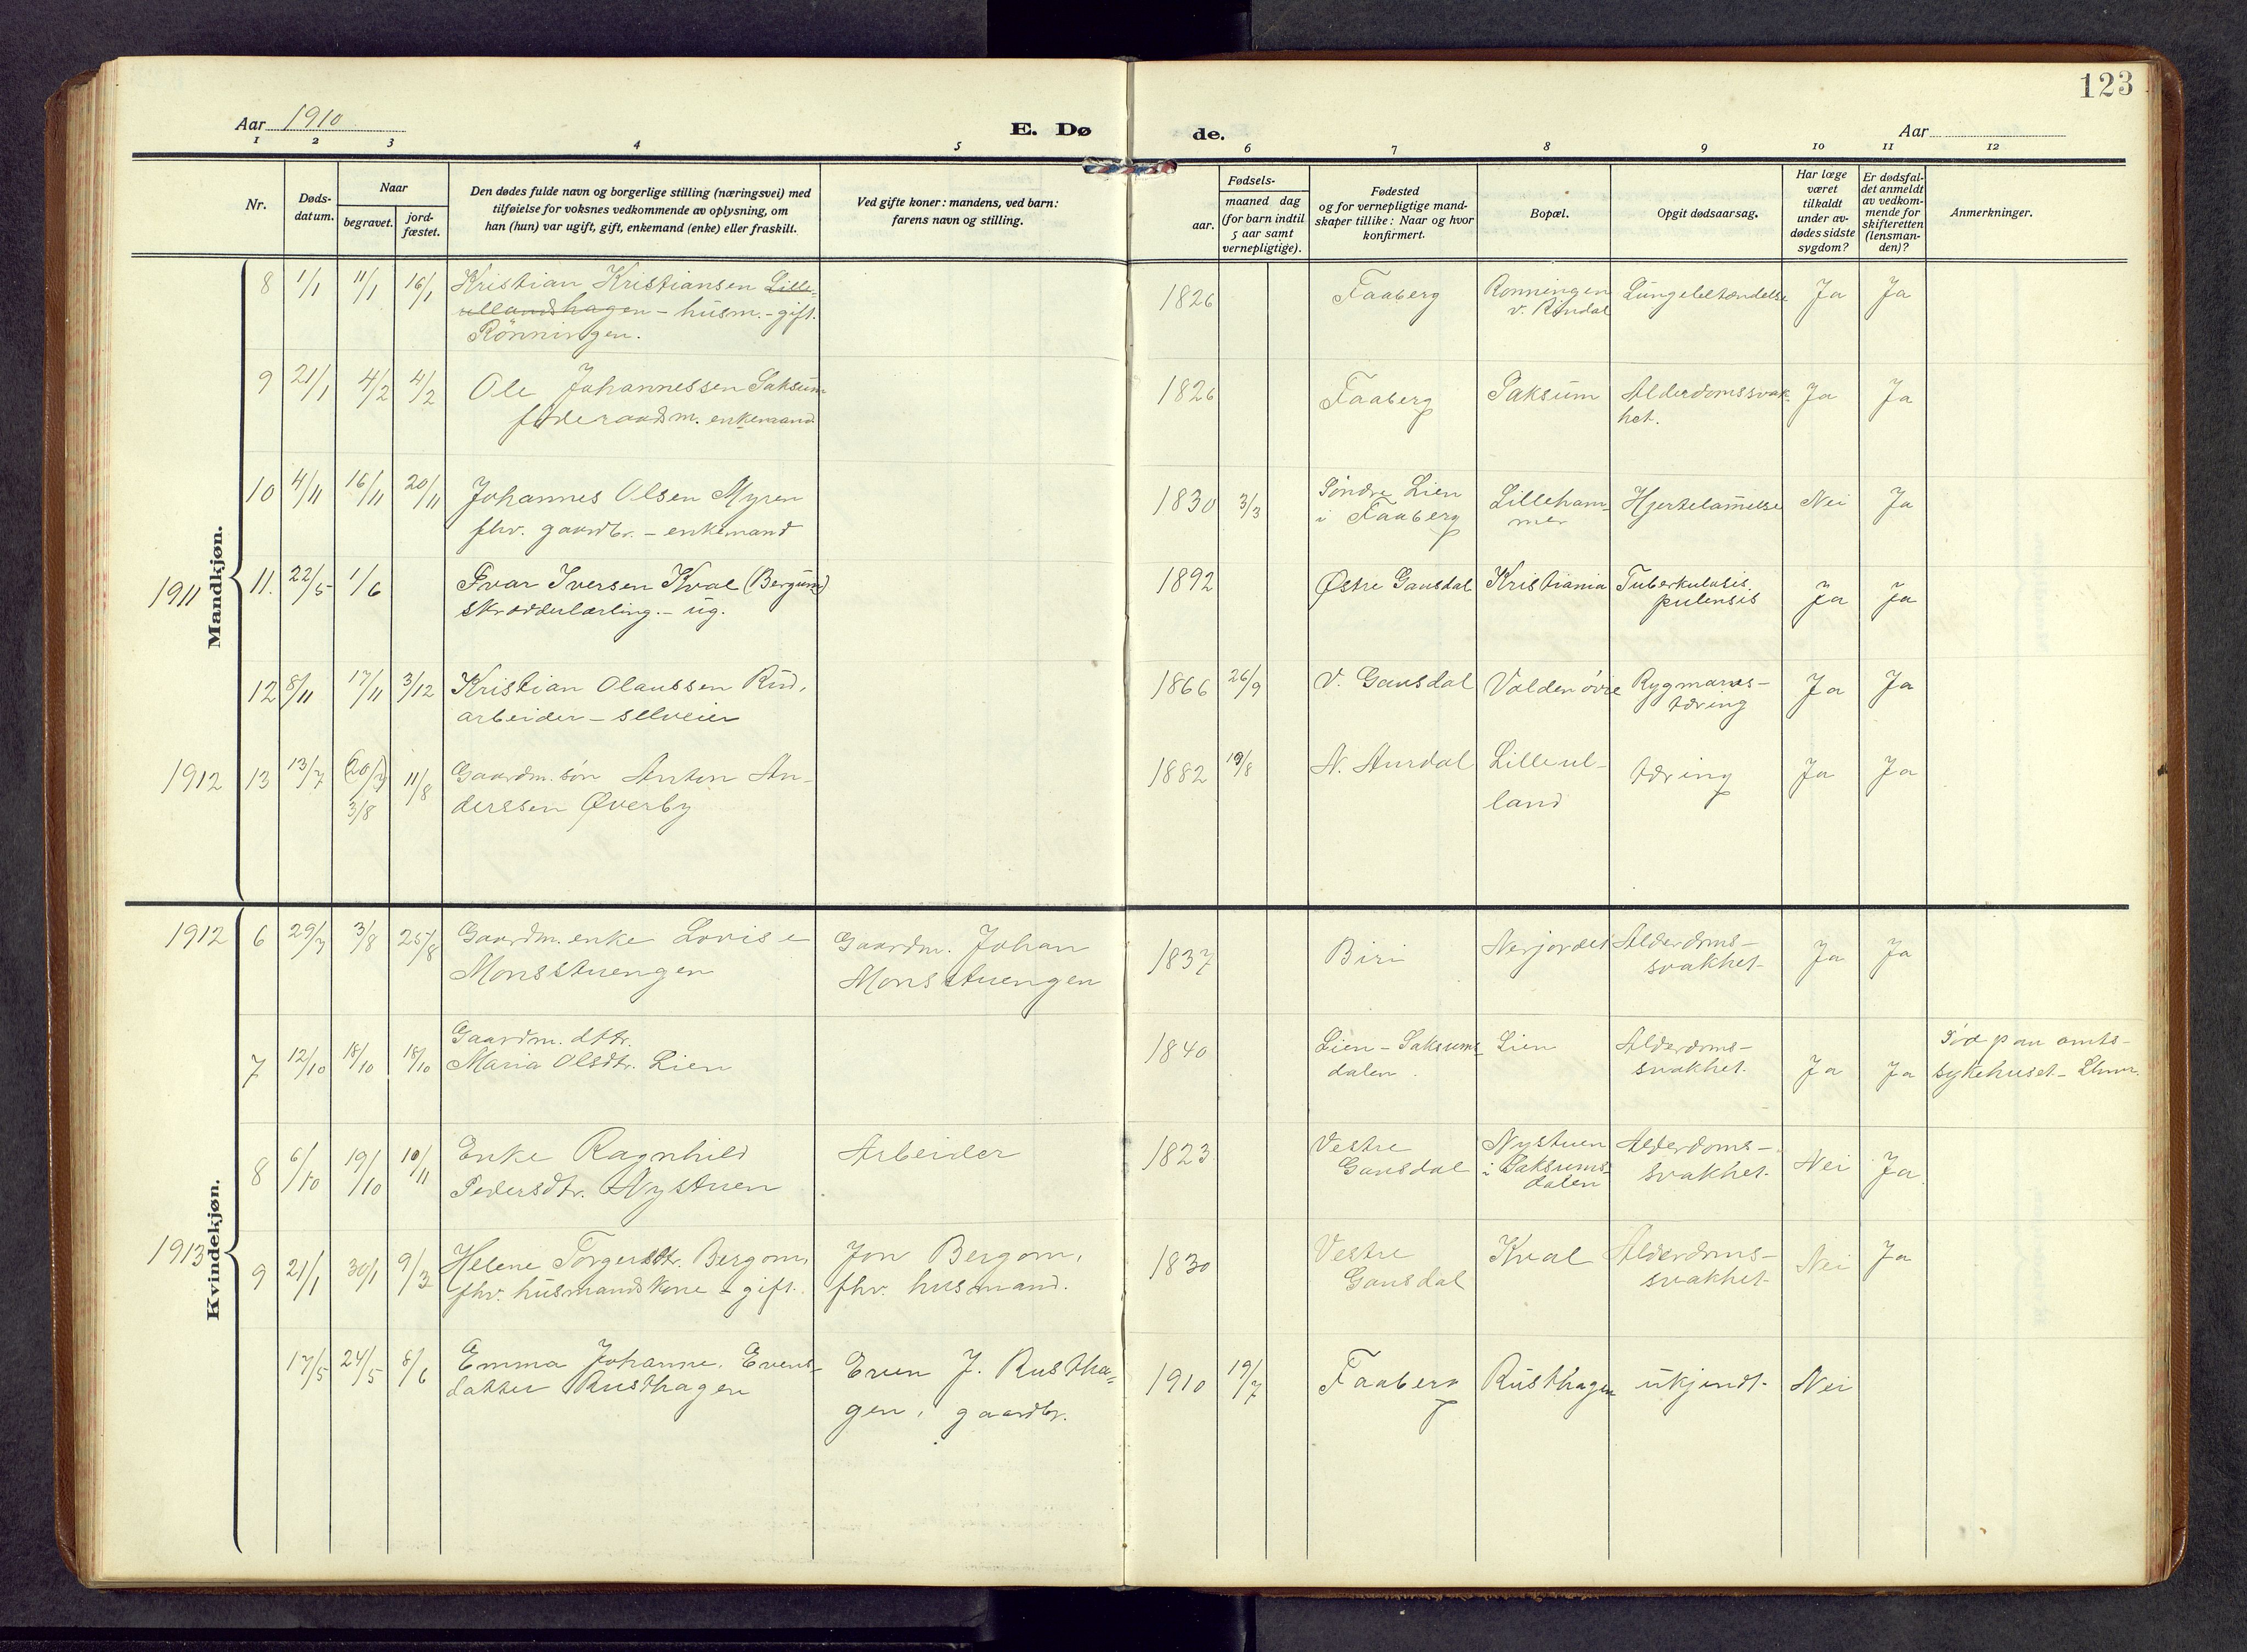 123
Aar 1910
E. Dø
de.
Aar
1 2 3 4 5 6 7 8 9 10 11 12
Nr.
Døds-
datum.
Naar
begravet.
jord-
fæstet.
Den dødes fulde navn og borgerlige stilling (næringsvei) med
tilføielse for voksnes vedkommende av oplysning, om
han (hun) var ugift, gift, enkemand (enke) eller fraskilt.
Ved gifte koner: mandens, ved barn:
farens navn og stilling.
Fødsels-
aar.
maaned dag
(for barn indtil
5 aar samt
vernepligtige).
Fødested
og for vernepligtige mand-
skaper tillike: Naar og hvor
konfirmert.
Bopæl.
Opgit dødsaarsag.
Har læge
været
tilkaldt
under av-
dødes sidste
sygdom?
Er dødsfal-
det anmeldt
av vedkom-
mende for
skifteretten
(lensman-
den)?
Anmerkninger.
Mandkjøn.
8 1/1 11/1 16/1 Kristian Kristiansen Lille-
ullandshagen - husm. - gift.
Rönningen.
1826 Faaberg Ronningen
v. Rindal
Lungebetændelse Ja Ja
9 21/1 4/2 4/2 Ole Johannessen Saksum
föderaadsm. enkemand
1826 Faaberg Saksum Alderdomssvak-
het.
Ja Ja
10 4/11 16/11 20/11 Johannes Olsen Myren
fhv. gaardbr. - enkemand
1830 3/3 Söndre Lien
i Faaberg
Lilleham-
mer
Hjertelammelse Nei Ja
1911 11. 22/5 1/6 Ivar Iversen Kval (Bergum)
skrædderlærling. - ug.
1892 Østre Gausdal Kristiania Tuberkulosis
pulensis
Ja Ja
12 8/11 17/11 3/12 Kristian Olaussen Rud,
arbeider - selveier
1866 26/9 V. Gausdal Valden övre Rygmarvs-
tæring
Ja Ja
1912 13 13/7 (20/7) 11/8 Gaardm. sön Anton An-
3/8 derssen Øverby
1882 19/8 N. Aurdal Lilleul-
land
tæring Ja Ja
Kvindekjøn.
1912 6 29/7 3/8 25/8 Gaardm. enke Lovise
Monsstuengen
Gaardm. Johan
Monsstuengen
1837 Biri Nerjordet Alderdoms-
svakhet
Ja Ja
7 12/10 18/10 18/10 Gaardm. dttr.
Maria Olsdtr. Lien
1840 Lien - Saksums-
dalen.
Lien Alderdoms-
svakhet.
Ja Ja Död paa amts-
sykehuset - Lhmr.
8 6/10 19/10 10/11 Enke Ragnhild
Pedersdtr. Nystuen
Arbeider
1823 Vestre
Gausdal
Nystuen
i Saksums-
dalen
Alderdoms-
svakhet.
Nei Ja
1913 9 21/1 30/1 9/3 Helene Torgersdtr. Bergom,
fhv. husmandskone - gift.
Jon Bergom,
fhv. husmand.
1830 Vestre
Gausdal
Kval Alderdoms-
svakhet
Nei Ja
17/5 24/5 8/6 Emma Johanne Evens-
datter Rusthagen
Even J. Rustha-
gen, gaardbr.
1910 19/7 Faaberg Rusthagen ukjendt. Nei